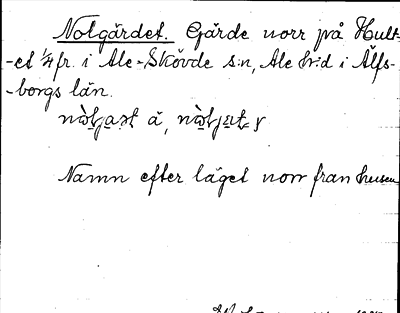 Nolgärdet. Gärde norr på Hult-
-et 1/4 fr. i Ale-Skövde s:n, Ale hrd i Älfs-
-borgs län.
Namn efter läget norr från husen